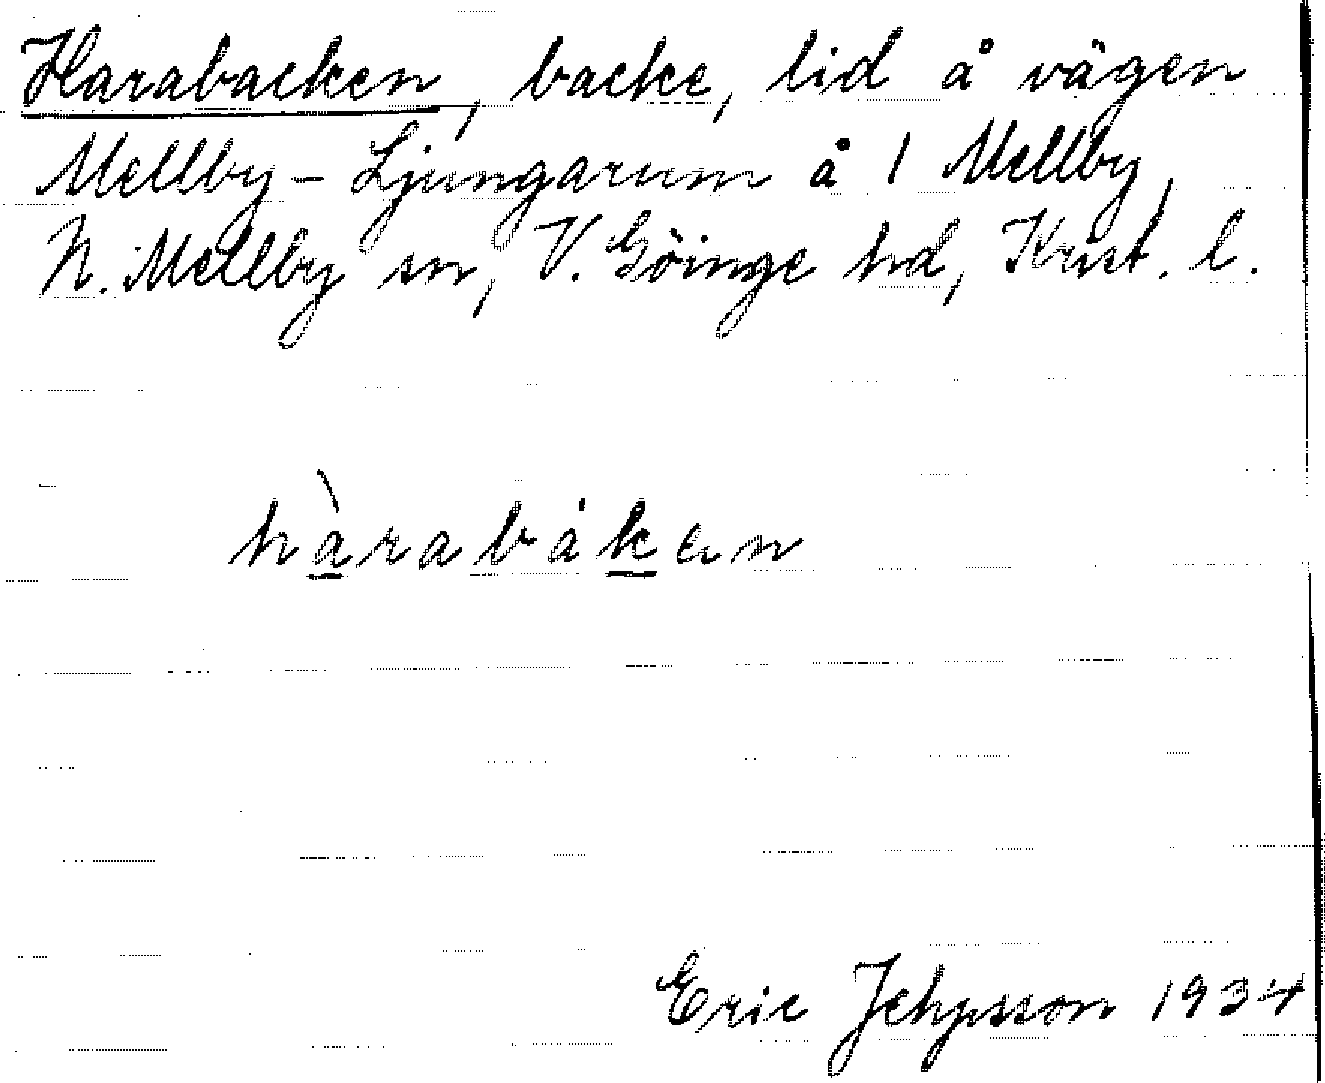 Harabacken, backe, lid å vägen
Mellby - Ljungarum å 1 Mellby,
N. Mellby sn, V. Göinge hd, Krist. l.
hàrabáken
Eric Jehpsson 1934